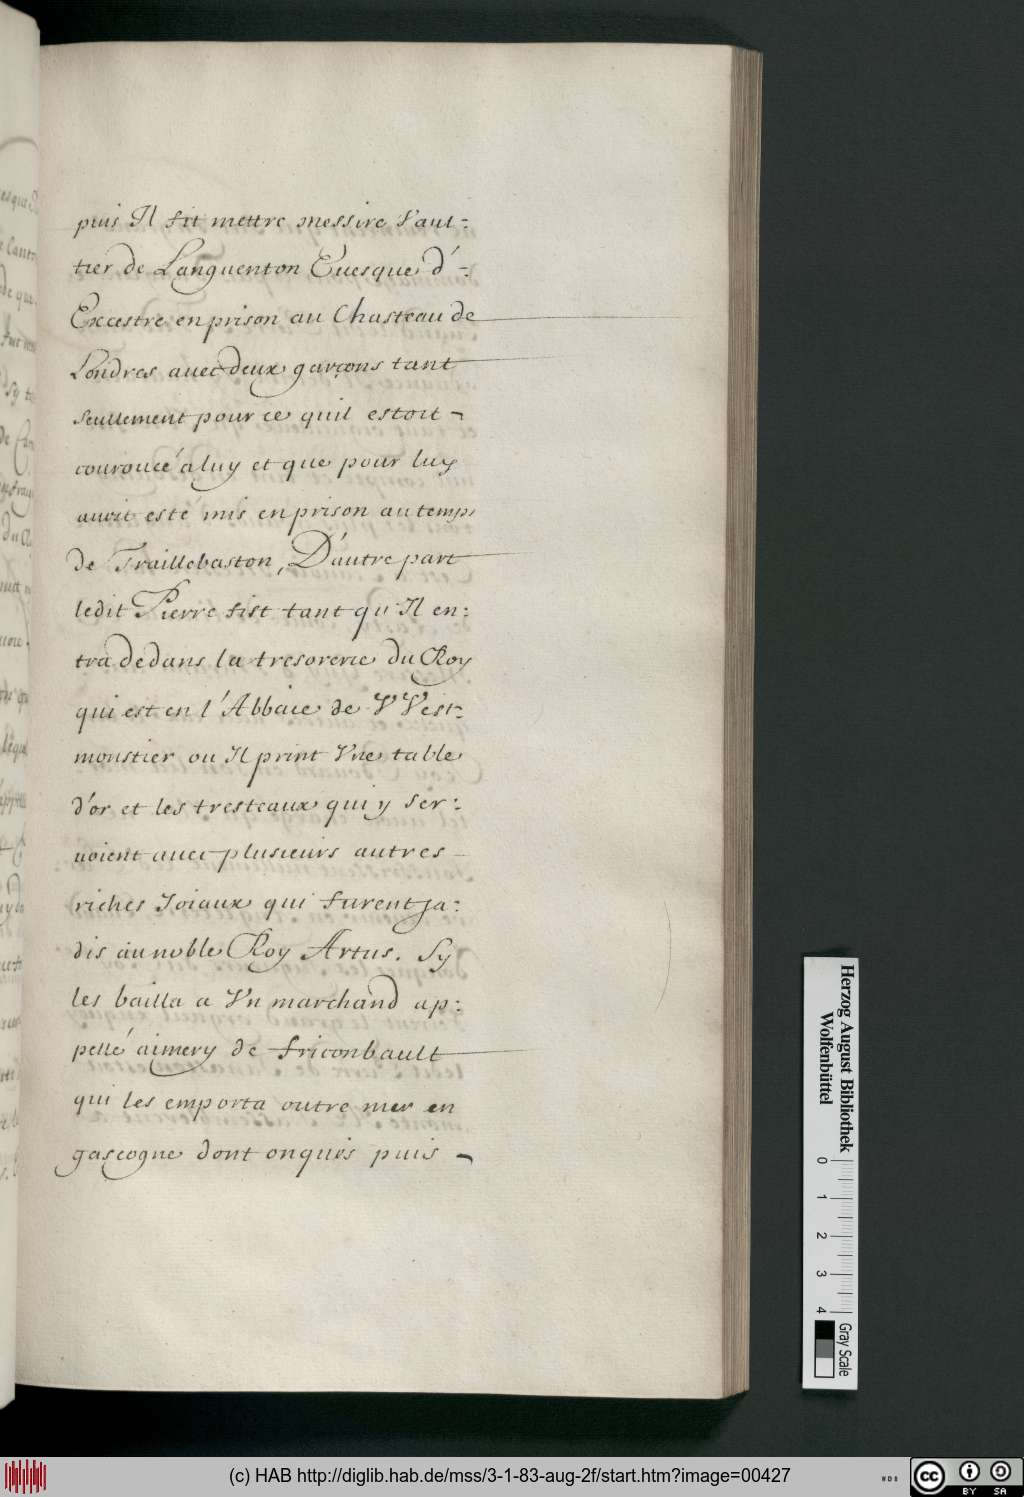 puis Il fit mettre messire Vaul-:
tier de Languenton Euesque d'-:
Excestre en prison au Chasteau de
Londres auec deux garçons tant
seullement pour ce quil estoit -
couroucé a luy et que pour luy
auoit esté mis en prison au temps
de Traillebaston, D'autre part
ledit Pierre fist tant qu'Il en:
tra dedans la tresorerie du Roy
qui est en l'Abbaie de VVest-:
monstier ou Il print Vne table
d'or et les tresteaux qui y ser-:
uoient auec plusieurs autres -
riches Ioiaux qui furent ja:
dis au noble Roy Artus. Sy
les bailla a Vn marchand ap-:
pellé aimery de friconbault
qui les emporta outre mer en
gascogne dont onques puis -
Herzog August Bibliothek
Wolfenbüttel
0 1 2 3 4
Gray Scale
(c) HAB http://diglib.hab.de/mss/3-1-83-aug-2f/start.htm?image=00427
WDB
cc BY SA